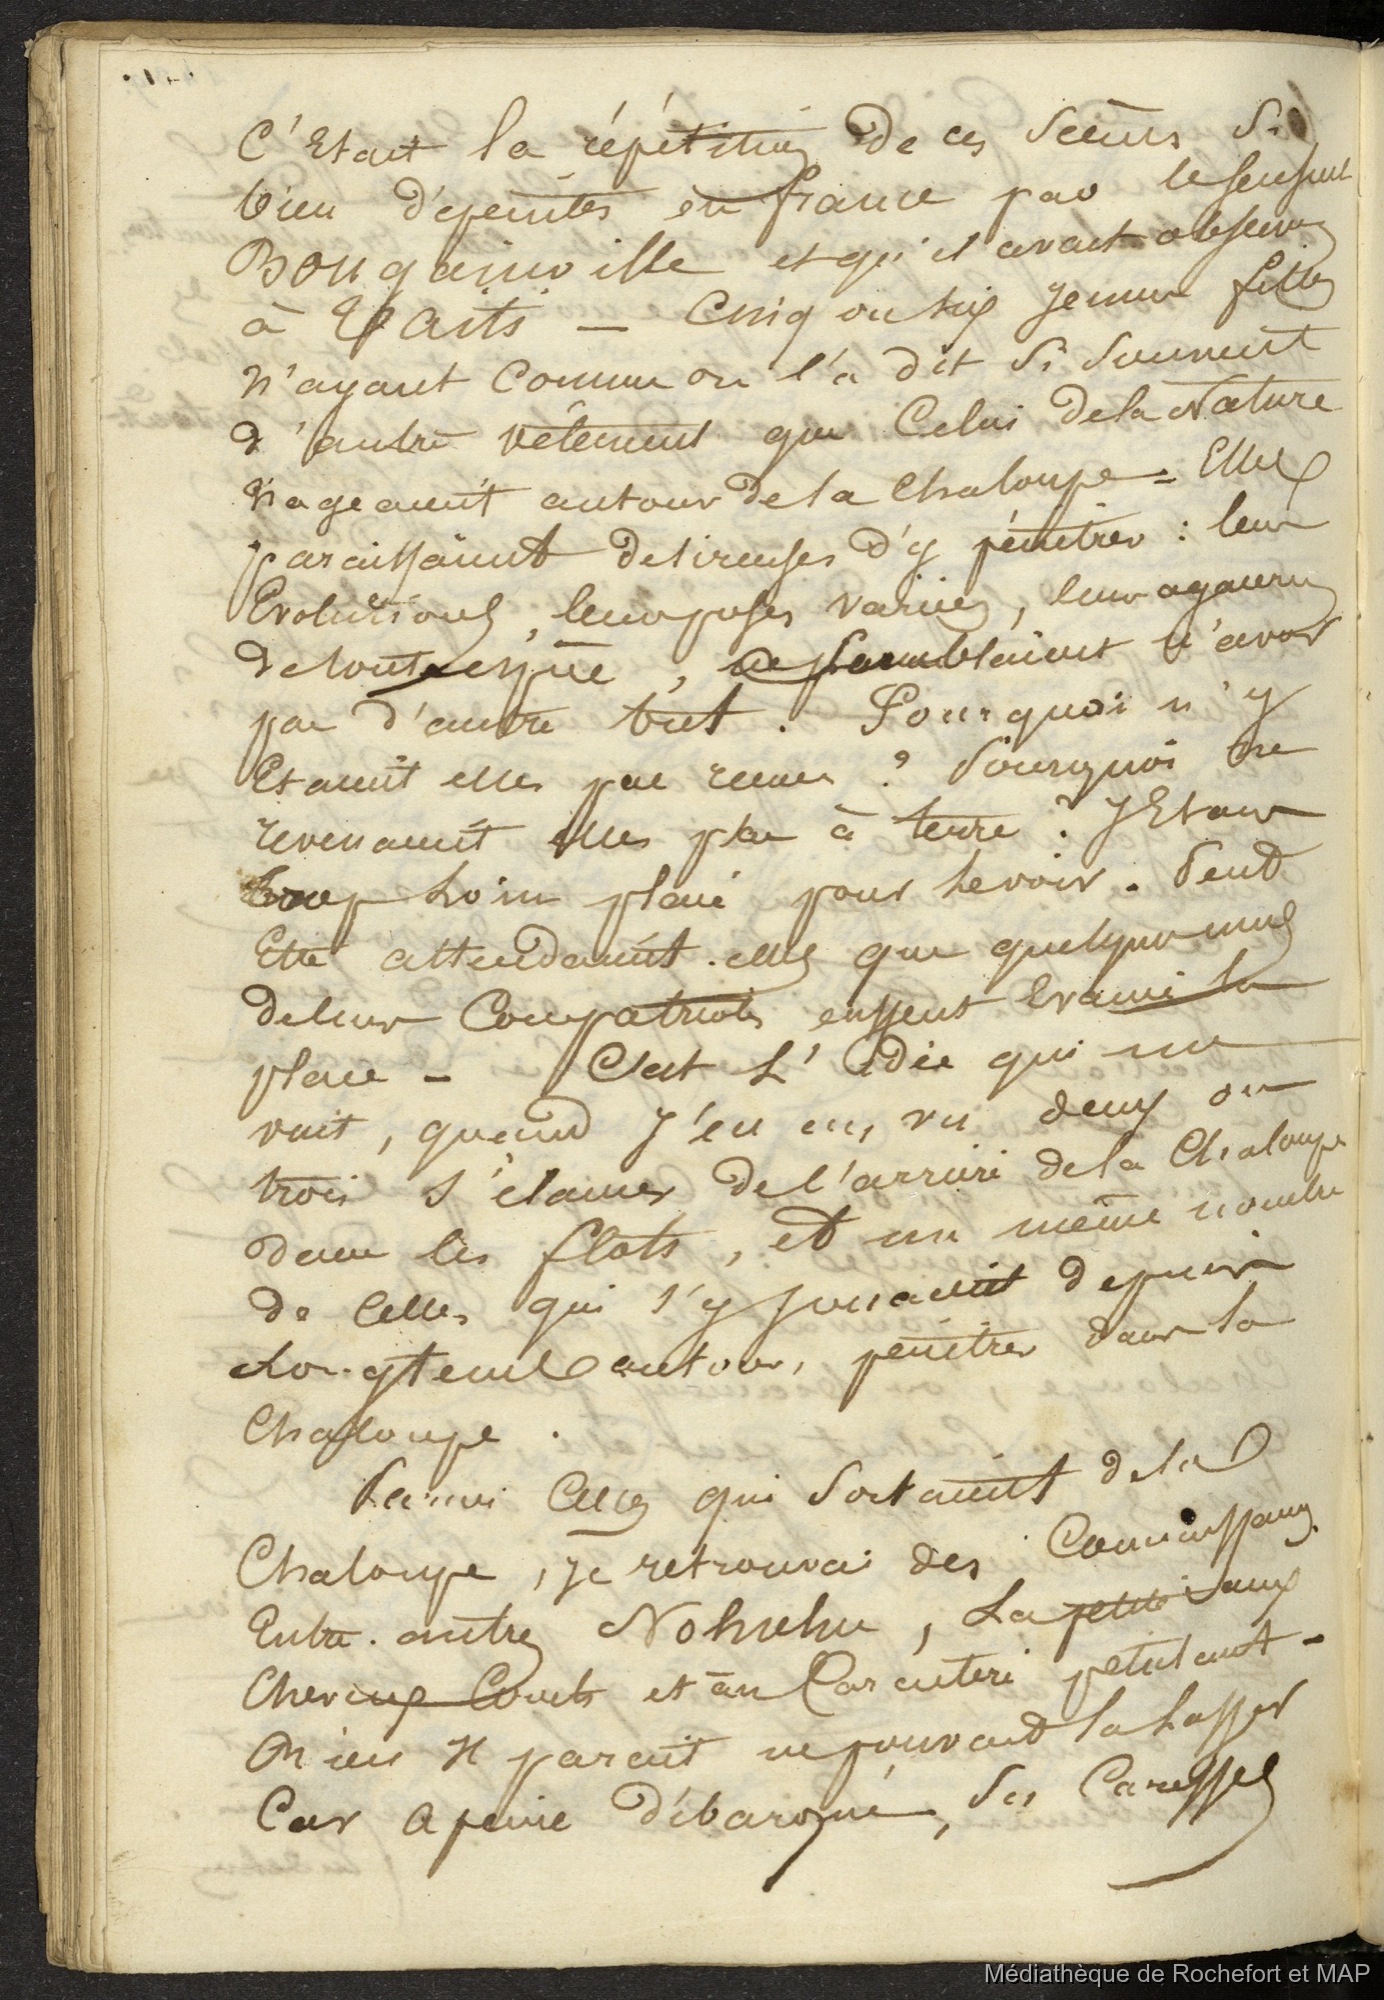 C'Etait la répétition de ces Scènes Si
bien dépeintes en france par le sensuel
Bougainville et qu'il avait observées
à Taiti — Cinq ou six jeunes filles
N'ayant Comme on l'a dit Si Souvent
d'autre vêtement que Celui de la Nature
Nageaient autour de la Chaloupe = Elles
paraissaient desireuses d'y pénétrer : leurs
Evolutions, leurs poses variées, leurs agaceries
de toute espèce, semblaient n'avoir
pas d'autre but. Pourquoi n'y
Etaient elles pas reçues ? Pourquoi ne
revenaient elles pas à terre ? J'Etais
trop Loin placé pour le voir. Peut
Etre attendaient-elles que quelques unes
de leurs Compatriotes eussent Evacué la
place — C'est L'idée qui me
vint, quand J'en eus vu deux ou
trois S'élancer de l'arrière de la Chaloupe
dans les flots, et un même nombre
de Celles qui s'y jouaient depuis
Longtems autour, pénétrer dans la
Chaloupe.
Parmi Celles qui Sortaient de la
Chaloupe, je retrouvai des Connaissances
Entre autres Nohuhu, La petite aux
Cheveux Courts et au Caractère pétulant —
Rien N parait ne pouvait la Lasser
Car a peine débarquée, Ses Caresses
Médiathèque de Rochefort et MAP